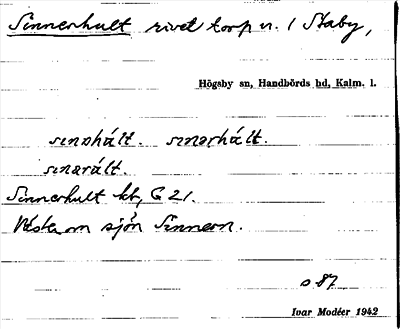 Sinnerhult rivet torp u. / Staby,
Högsby sn, Handbörds hd, Kalm. l.
sınəhált. sınərhált.
sınərált.
Sinnerhult kt, G 21.
Väster om sjön Sinnern.
s 87
Ivar Modéer 1942